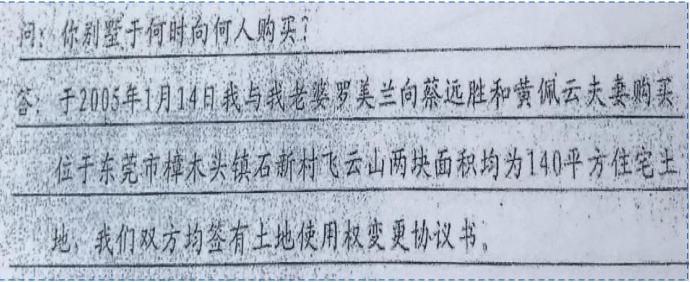 问：你别墅于何时向何人购买？
答：于2005年1月14日我与我老婆罗美兰向蔡远胜和黄佩云夫妻购买
位于东莞市樟木头镇石新村飞云山两块面积均为140平方住宅土
地，我们双方均签有土地使用权变更协议书。